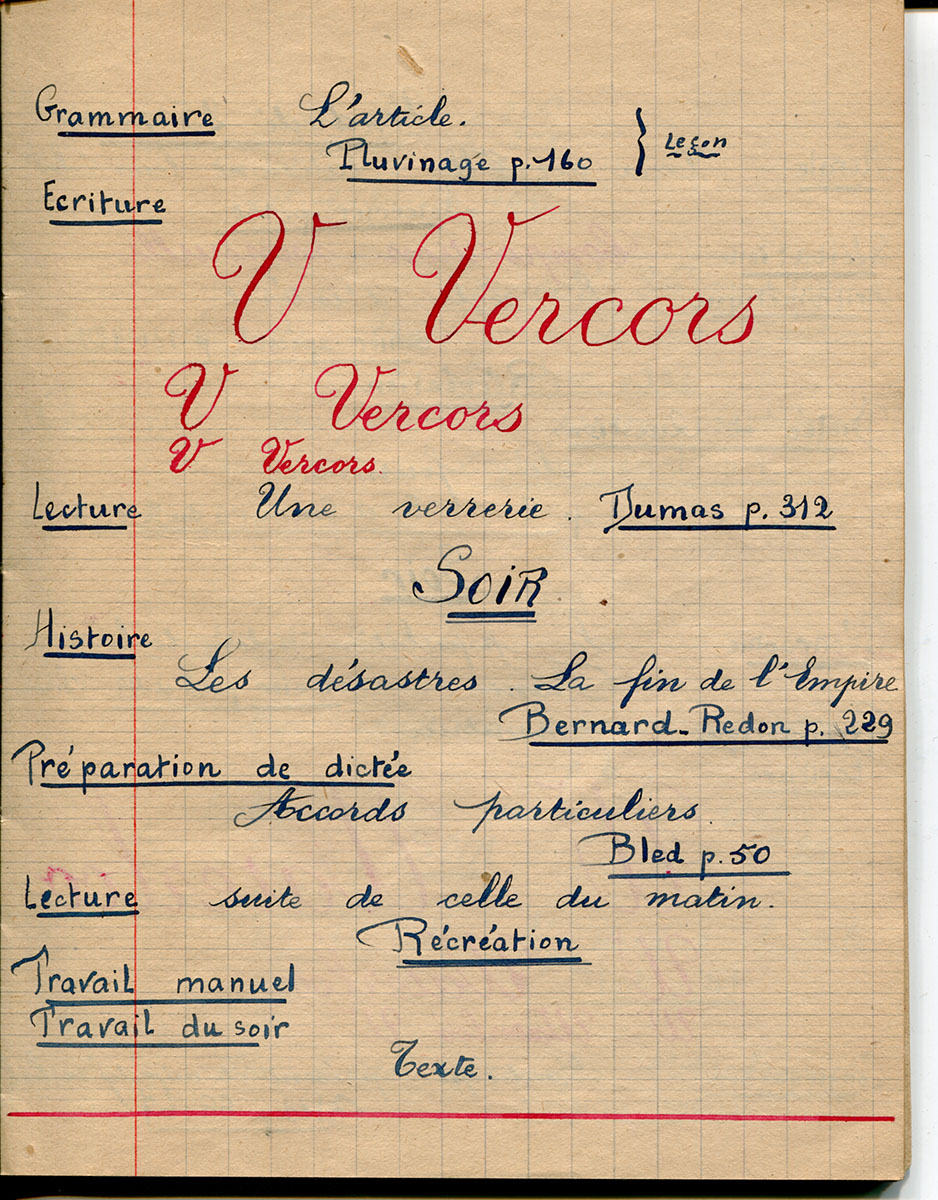 Grammaire L'article.
Pluvinage p.160 } Leçon
Ecriture
V Vercors
V Vercors
V Vercors.
Lecture Une verrerie. Dumas p. 312
SOIR
Histoire
Les désastres. La fin de l'Empire
Bernard-Redon p. 229
Préparation de dictée
Accords particuliers.
Bled p. 50
Lecture suite de celle du matin.
Récréation
Travail manuel
Travail du soir
Texte.